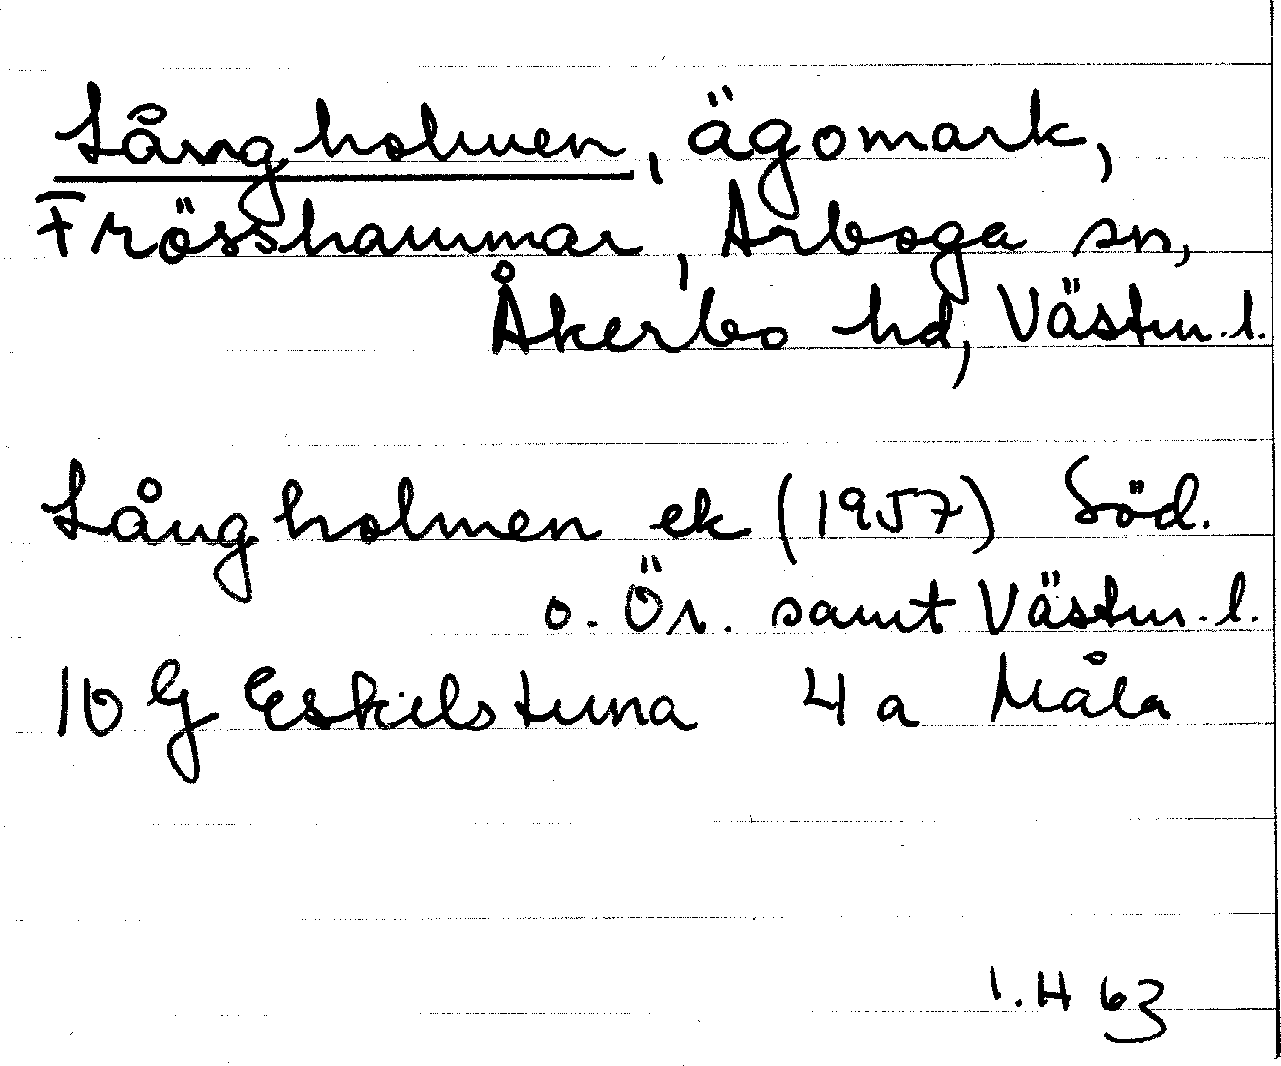 Långholmen, ägomark,
Frösshammar, Arboga sn,
Åkerbo hd, Västm.l.
Långholmen ek (1957) Söd.
o. Ör. samt Västm.l.
10 G Eskilstuna 4 a Måla
I.H 63